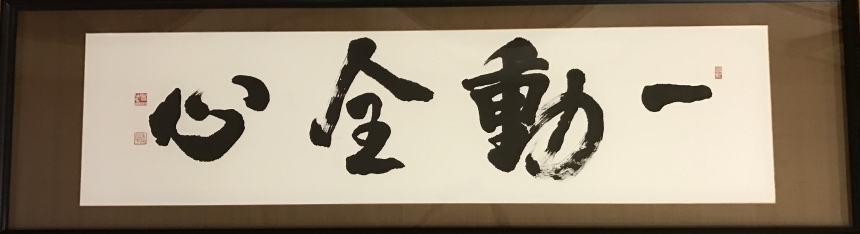 一動全心